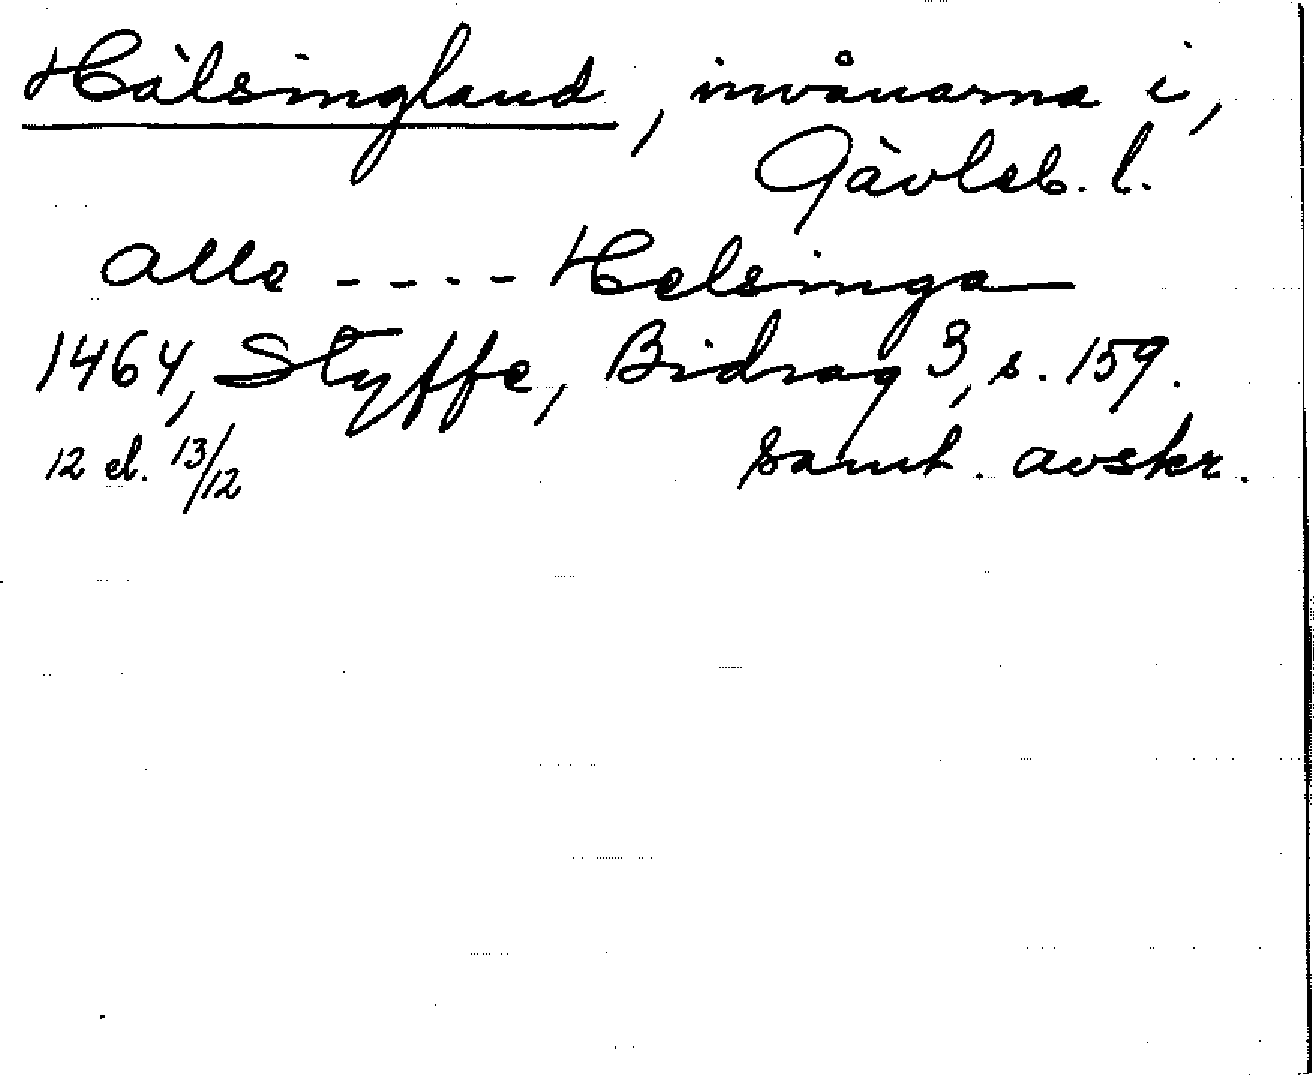 Hälsingland, invånarna i,
Gävleb. l.
alle ---- Helsinga
1464, Styffe, Bidrag 3, s. 159.
12 el. 13/12 samt. avskr.